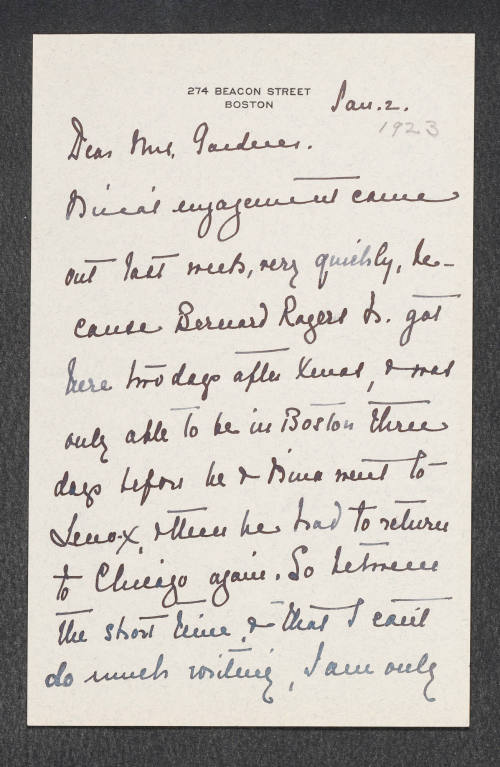 274 BEACON STREET
BOSTON
Jan. 2.
1923
Dear Mrs. Gardner.
Bina's engagement came
out last week, very quickly, be-
cause Bernard Rogers Jr. got
here two days after Xmas, & was
only able to be in Boston three
days before he & Bina went to
Lenox, & then he had to return
to Chicago again. So between
the short time, & that I can't
do much writing, I am only